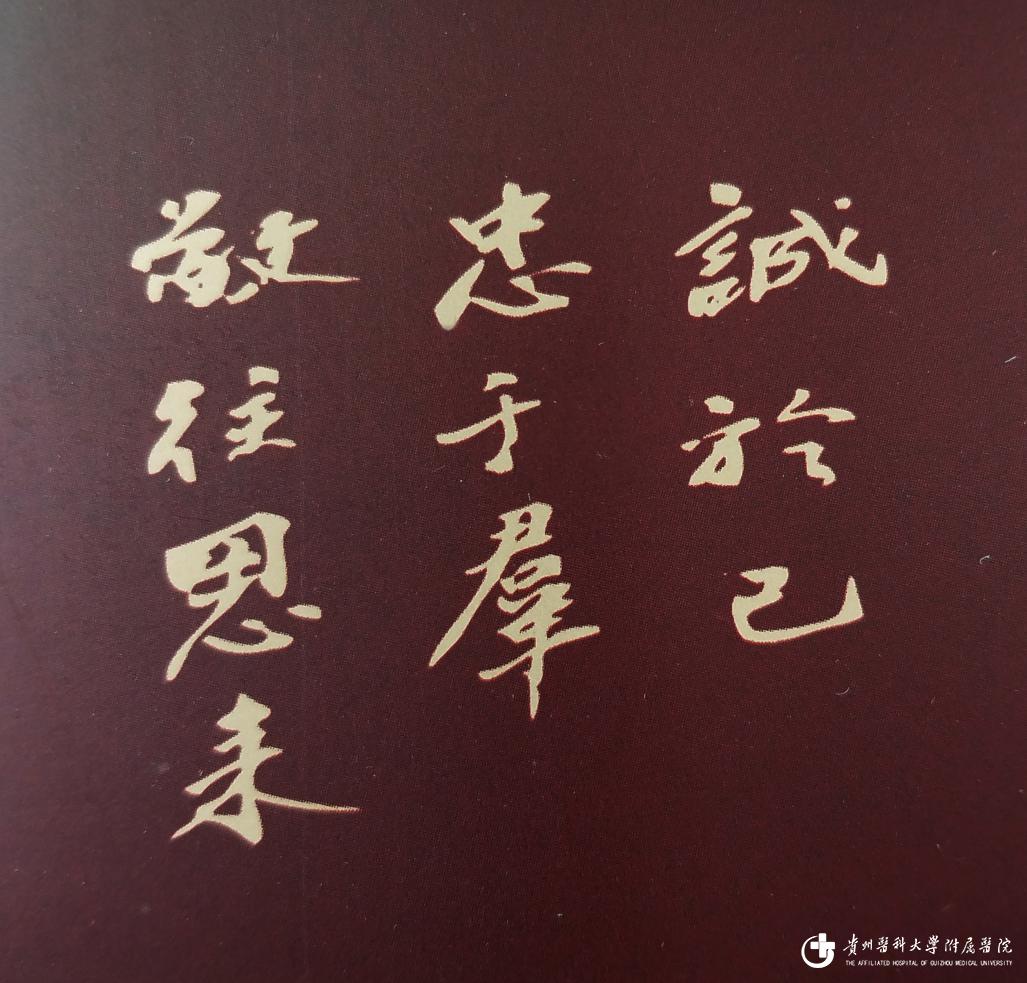 誠於己
忠于羣
敬往思来
貴州醫科大學附属醫院
THE AFFILIATED HOSPITAL OF GUIZHOU MEDICAL UNIVERSITY